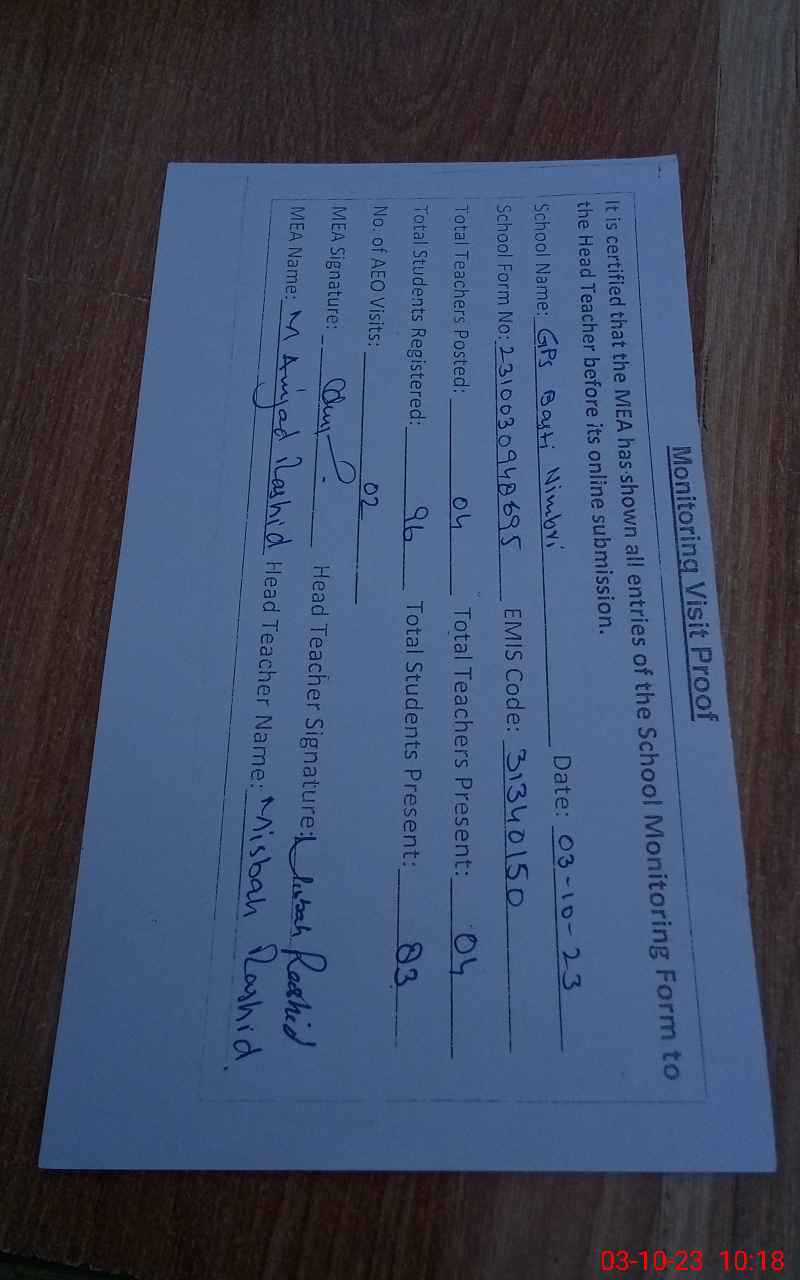 Monitoring Visit Proof
It is certified that the MEA has shown all entries of the School Monitoring Form to
the Head Teacher before its online submission.
School Name: GPS Basti Nimbri Date: 03-10-23
School Form No: 2310030948695 EMIS Code: 31340150
Total Teachers Posted: 04 Total Teachers Present: 04
Total Students Registered: 96 Total Students Present: 83
No. of AEO Visits: 02
MEA Signature: Head Teacher Signature: Misbah Rashid
MEA Name: M Amjad Rashid Head Teacher Name: Misbah Rashid.
03-10-23 10:18